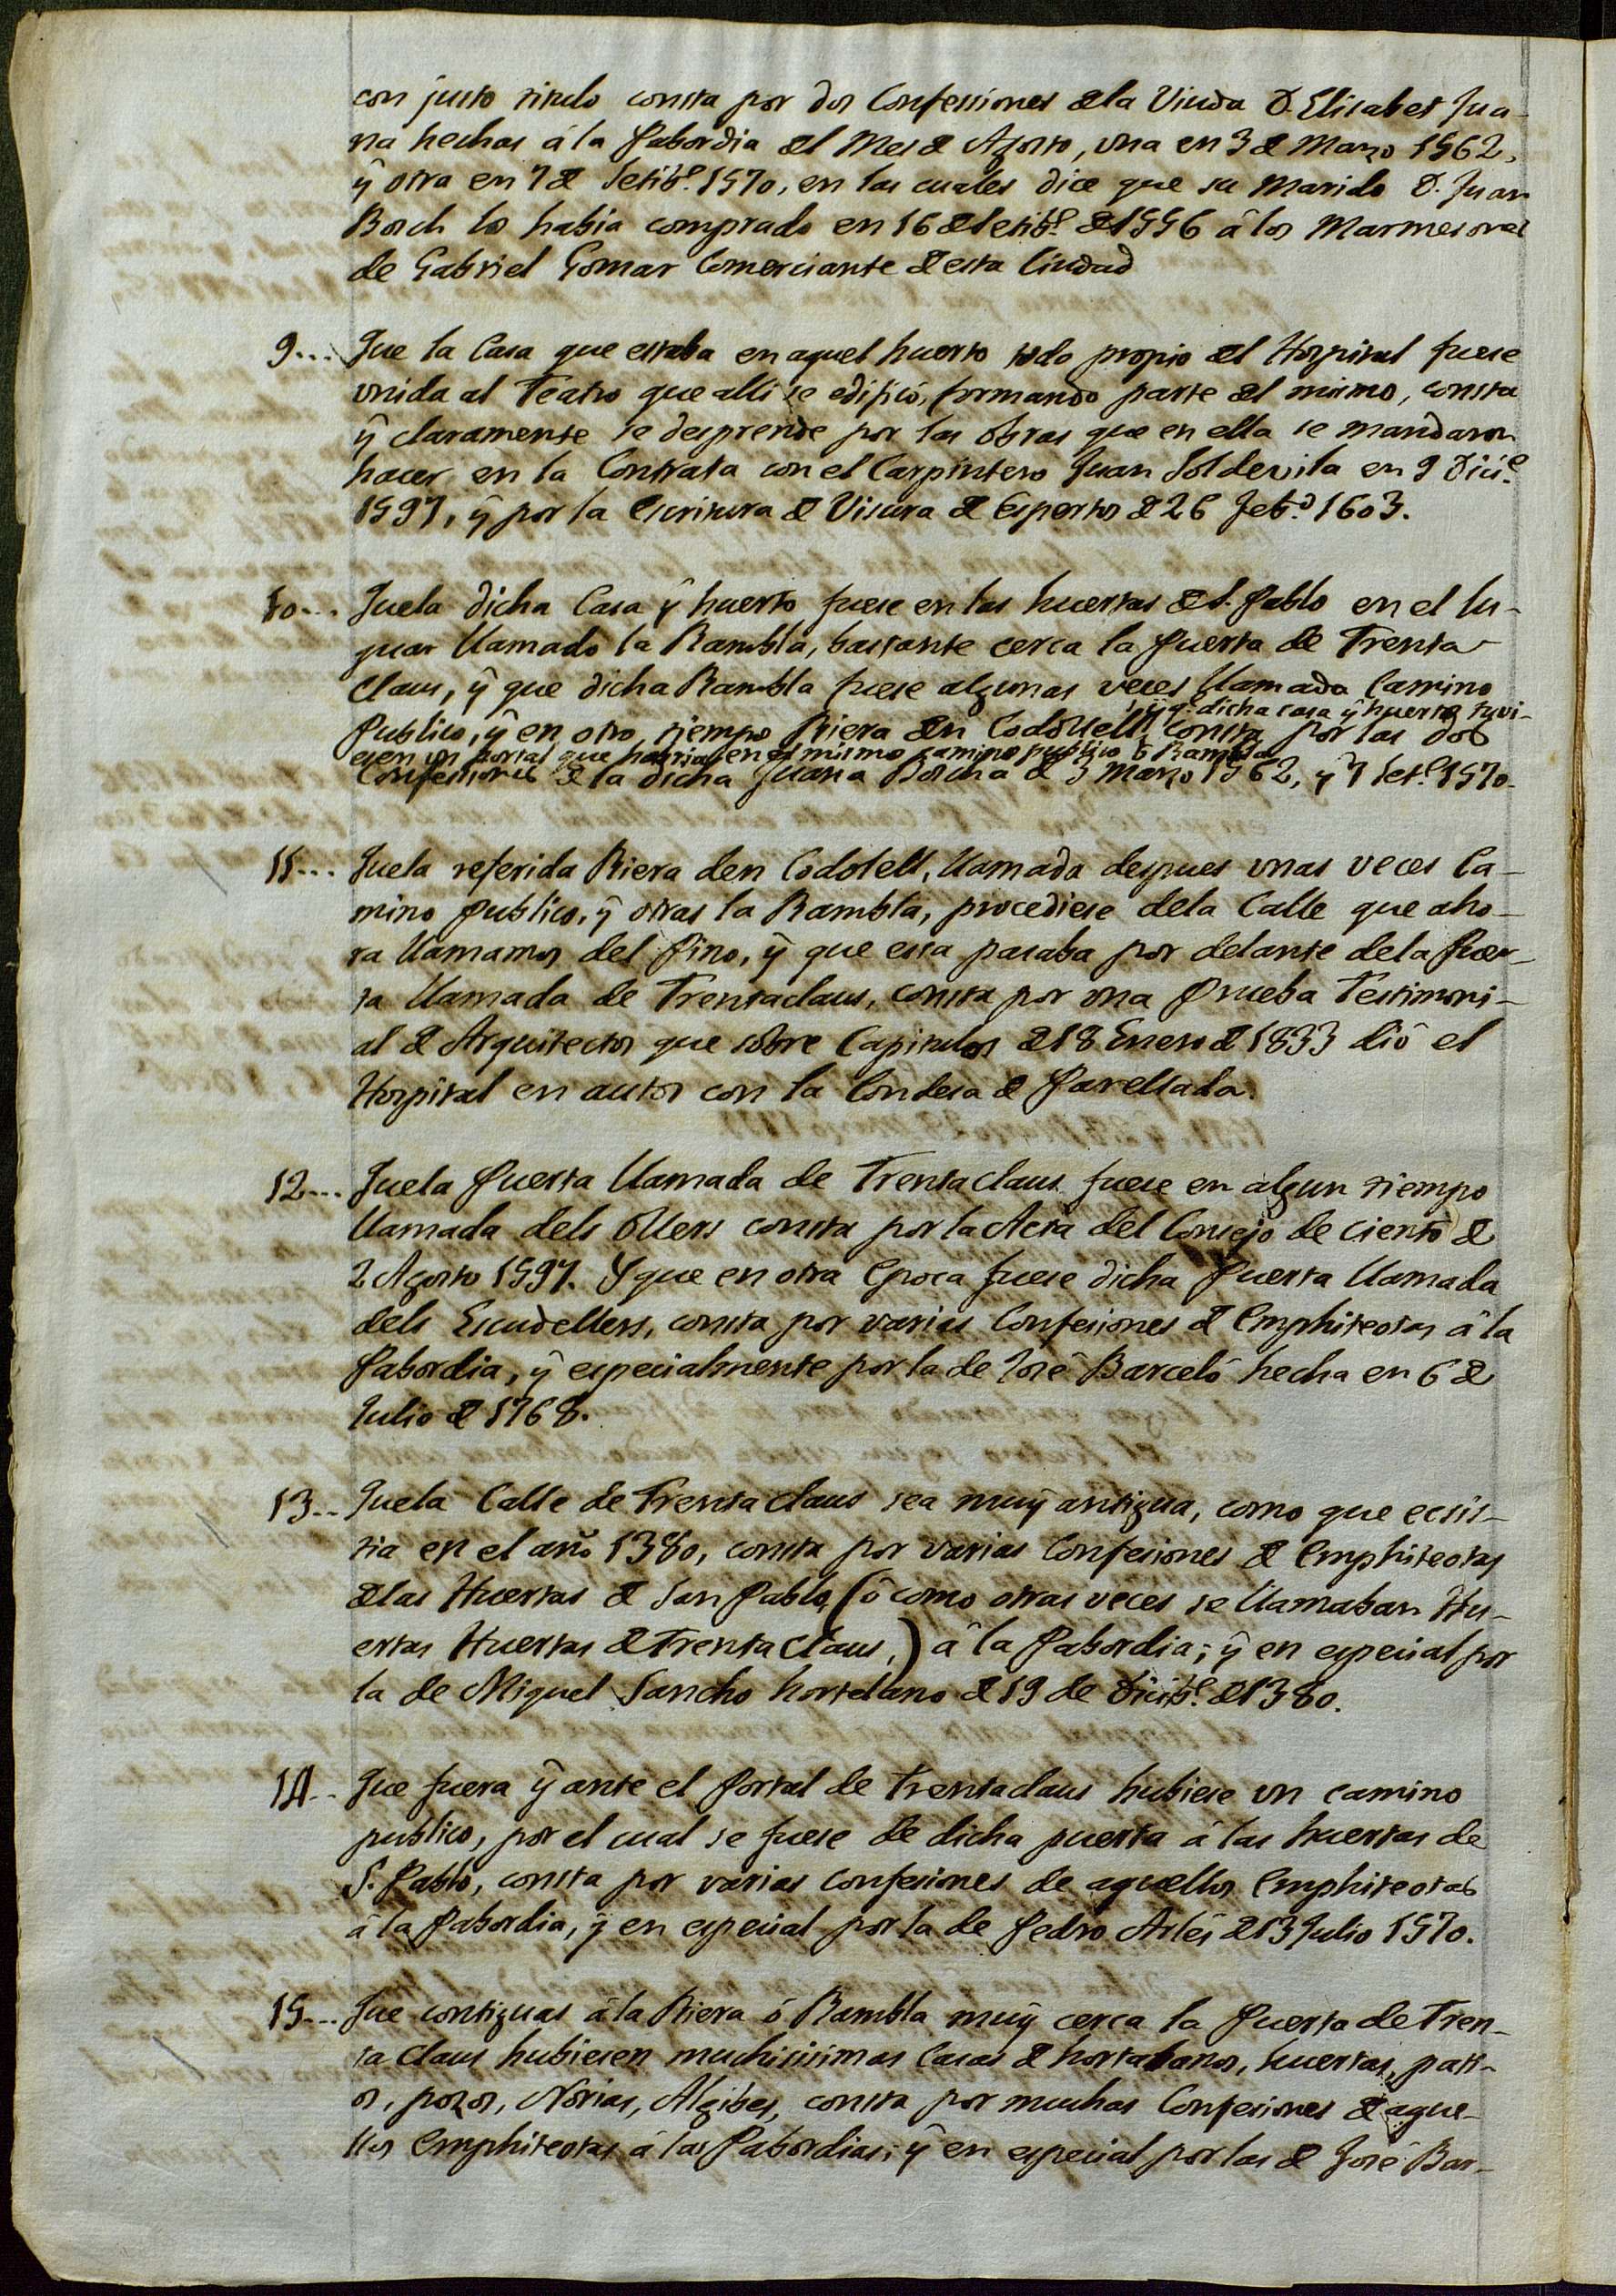 con justo titulo consta por dos Confessiones de la Viuda D. Elisabet Jua-
na hechas â la Pabordia del Mes de Agosto, una en 3 de Marzo 1562,
ÿ otra en 7 de Setibᵉ. 1570, en las cuales dice que su Marido D. Juan
Bosch lo habia comprado en 16 de Setibᵉ de 1556 â los Marmesores
de Gabriel Gomar Comerciante de esta Ciudad
9... Que la Casa que estaba en aquel huerto todo propio del Hospital fuese
unida al Teatro que alli se edificó, formando parte del mismo, consta
ÿ claramente se desprende por las obras que en ella se mandaron
hacer en la Contrata con el Carpintero Juan Soldevila en 9 Diciᵉ.
1597, ÿ por la Escritura de Visura de Espertos de 26 Febº. 1603.
10... Que la dicha Casa ÿ huerto fuese en las huertas de S. Pablo en el lu-
guar llamado la Rambla, bastante cerca la Puerta de Trenta
Claus, ÿ que dicha Rambla fuese algunas veces llamada Camino
ÿ q. dicha casa ÿ huerto tuvi-
Publico, ÿ en otro tiempo Riera den Codolell, consta por las dos
esen un portal que habria en el mismo camino publico ô Rambla
Confesiones de la dicha Juana Boscha de 3 Marzo 1562, ÿ 7 Setᵉ. 1570.
11... Que la referida Riera den Codolell, llamada despues unas veces Ca-
mino publico, ÿ otras la Rambla, procediese de la Calle que aho-
ra llamamos del Pino, ÿ que esta pasaba por delante de la Puer-
ta llamada de Trentaclaus, consta por una Prueba Testimoni-
al de Arquitectos que sobre Capitulos de 18 Enero de 1833 dió el
Hospital en autos con la Condesa de Parellada.
12... Que la Puerta llamada de Trentaclaus fuese en algun tiempo
llamada dels Ollers consta por la Acta del Consejo de Ciento de
2 Agosto 1597. Y que en otra Epoca fuese dicha Puerta llamada
dels Escudellers, consta por varias Confesiones de Emphiteotas â la
Pabordia, ÿ especialmente por la de José Barceló hecha en 6 de
Julio de 1768.
13... Que la Calle de Trenta claus sea muÿ antigua, como que ecsis-
tia en el año 1380, consta por varias Confesiones de Emphiteotas
de las Huertas de San Pablo, (ô como otras veces se llamaban Hu-
ertas Huertas de Trenta Claus,) â la Pabordia; ÿ en especial por
la de Miguel Sancho hortelano de 19 de Dicibᵉ. de 1380.
14... Que fuera ÿ ante el Portal de Trentaclaus hubiese un camino
publico, por el cual se fuese de dicha puerta â las huertas de
S. Pablo, consta por varias confesiones de aquellos Emphiteotas
â la Pabordia, ÿ en especial por la de Pedro Arlés de 13 Julio 1570.
15... Que contiguas â la Riera ó Rambla muÿ cerca la Puerta de Tren-
ta Claus hubiesen muchisisimas Casas de hortalanos, huertas, pati-
os, pozos, Norias, Algibes, consta por muchas Confesiones de aque-
llos Emphiteotas â las Pabordias; ÿ en especial por las de José Bar-